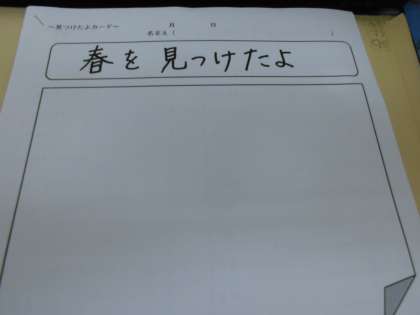 ～見つけたよカード～ 月 日
名まえ（ ）
春を 見つけたよ